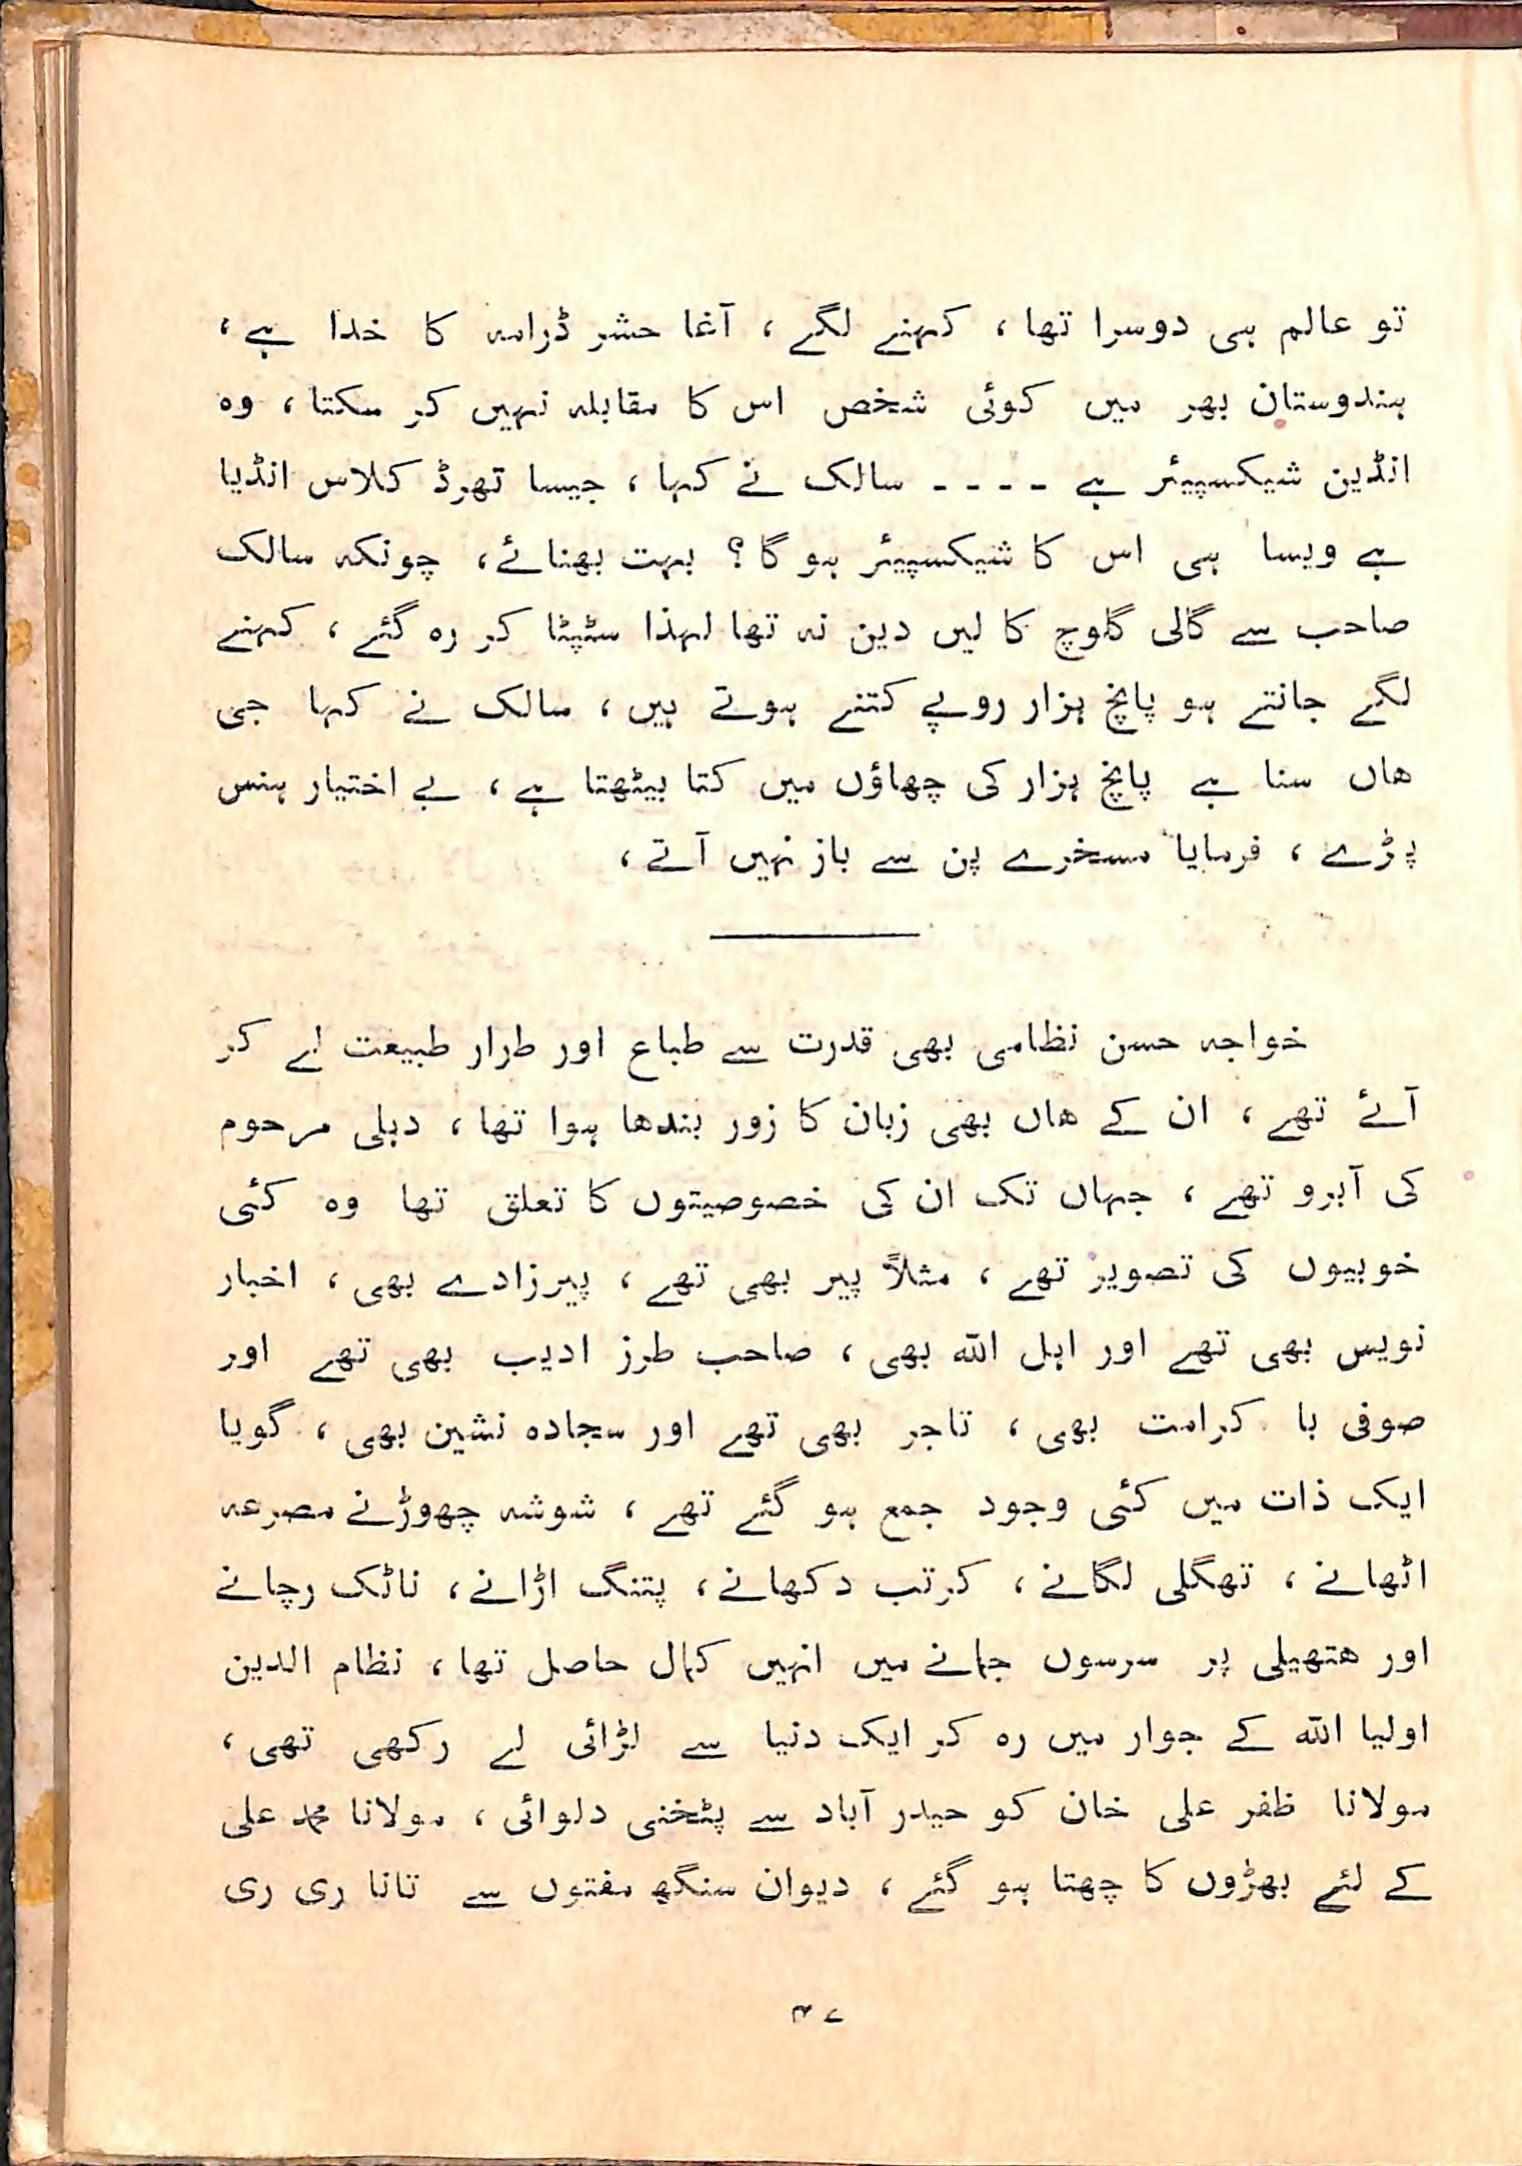 تو عالم ہی دوسرا تھا ، کہنے لگے ، آغا حشر ڈرامہ کا خدا ہے ،
ہندوستان بھر میں کوئی شخص اس کا مقابلہ نہیں کر سکتا ، وہ
انڈین شیکسپیئر ہے ـ ـ ـ ـ سالک نے کہا ، جیسا تھرڈ کلاس انڈیا
ہے ویسا ہی اس کا شیکسپیئر ہو گا ؟ بہت بھنائے ، چونکہ سالک
صاحب سے گالی گلوچ کا لیں دین نہ تھا لہذا سٹپٹا کر رہ گئے ، کہنے
لگے جانتے ہو پانچ ہزار روپے کتنے ہوتے ہیں ، سالک نے کہا جی
ھاں سنا ہے پانچ ہزار کی چھاؤں میں کتا بیٹھتا ہے ، بے اختیار ہنس
پڑے ، فرمایا مسخرے پن سے باز نہیں آتے ،
خواجہ حسن نظامی بھی قدرت سے طباع اور طرار طبیعت لے کر
آئے تھے ، ان کے ھاں بھی زبان کا زور بندھا ہوا تھا ، دہلی مرحوم
کی آبرو تھے ، جہاں تک ان کی خصوصیتوں کا تعلق تھا وہ کئی
خوبیوں کی تصویر تھے ، مثلاً پیر بھی تھے ، پیرزادے بھی ، اخبار
نویس بھی تھے اور اہل اللہ بھی ، صاحب طرز ادیب بھی تھے اور
صوفی با کرامت بھی ، تاجر بھی تھے اور سجادہ نشین بھی ، گویا
ایک ذات میں کئی وجود جمع ہو گئے تھے ، شوشہ چھوڑنے مصرعہ
اٹھانے ، تھگلی لگانے ، کرتب دکھانے ، پتنگ اڑانے ، ناٹک رچانے
اور ھتھیلی پر سرسوں جمانے میں انہیں کمال حاصل تھا ، نظام الدین
اولیا اللہ کے جوار میں رہ کر ایک دنیا سے لڑائی لے رکھی تھی ،
مولانا ظفر علی خان کو حیدر آباد سے پٹخنی دلوائی ، مولانا محمد علی
کے لئے بھڑوں کا چھتا ہو گئے ، دیوان سنگھ مفتوں سے تانا ری ری
۴۷